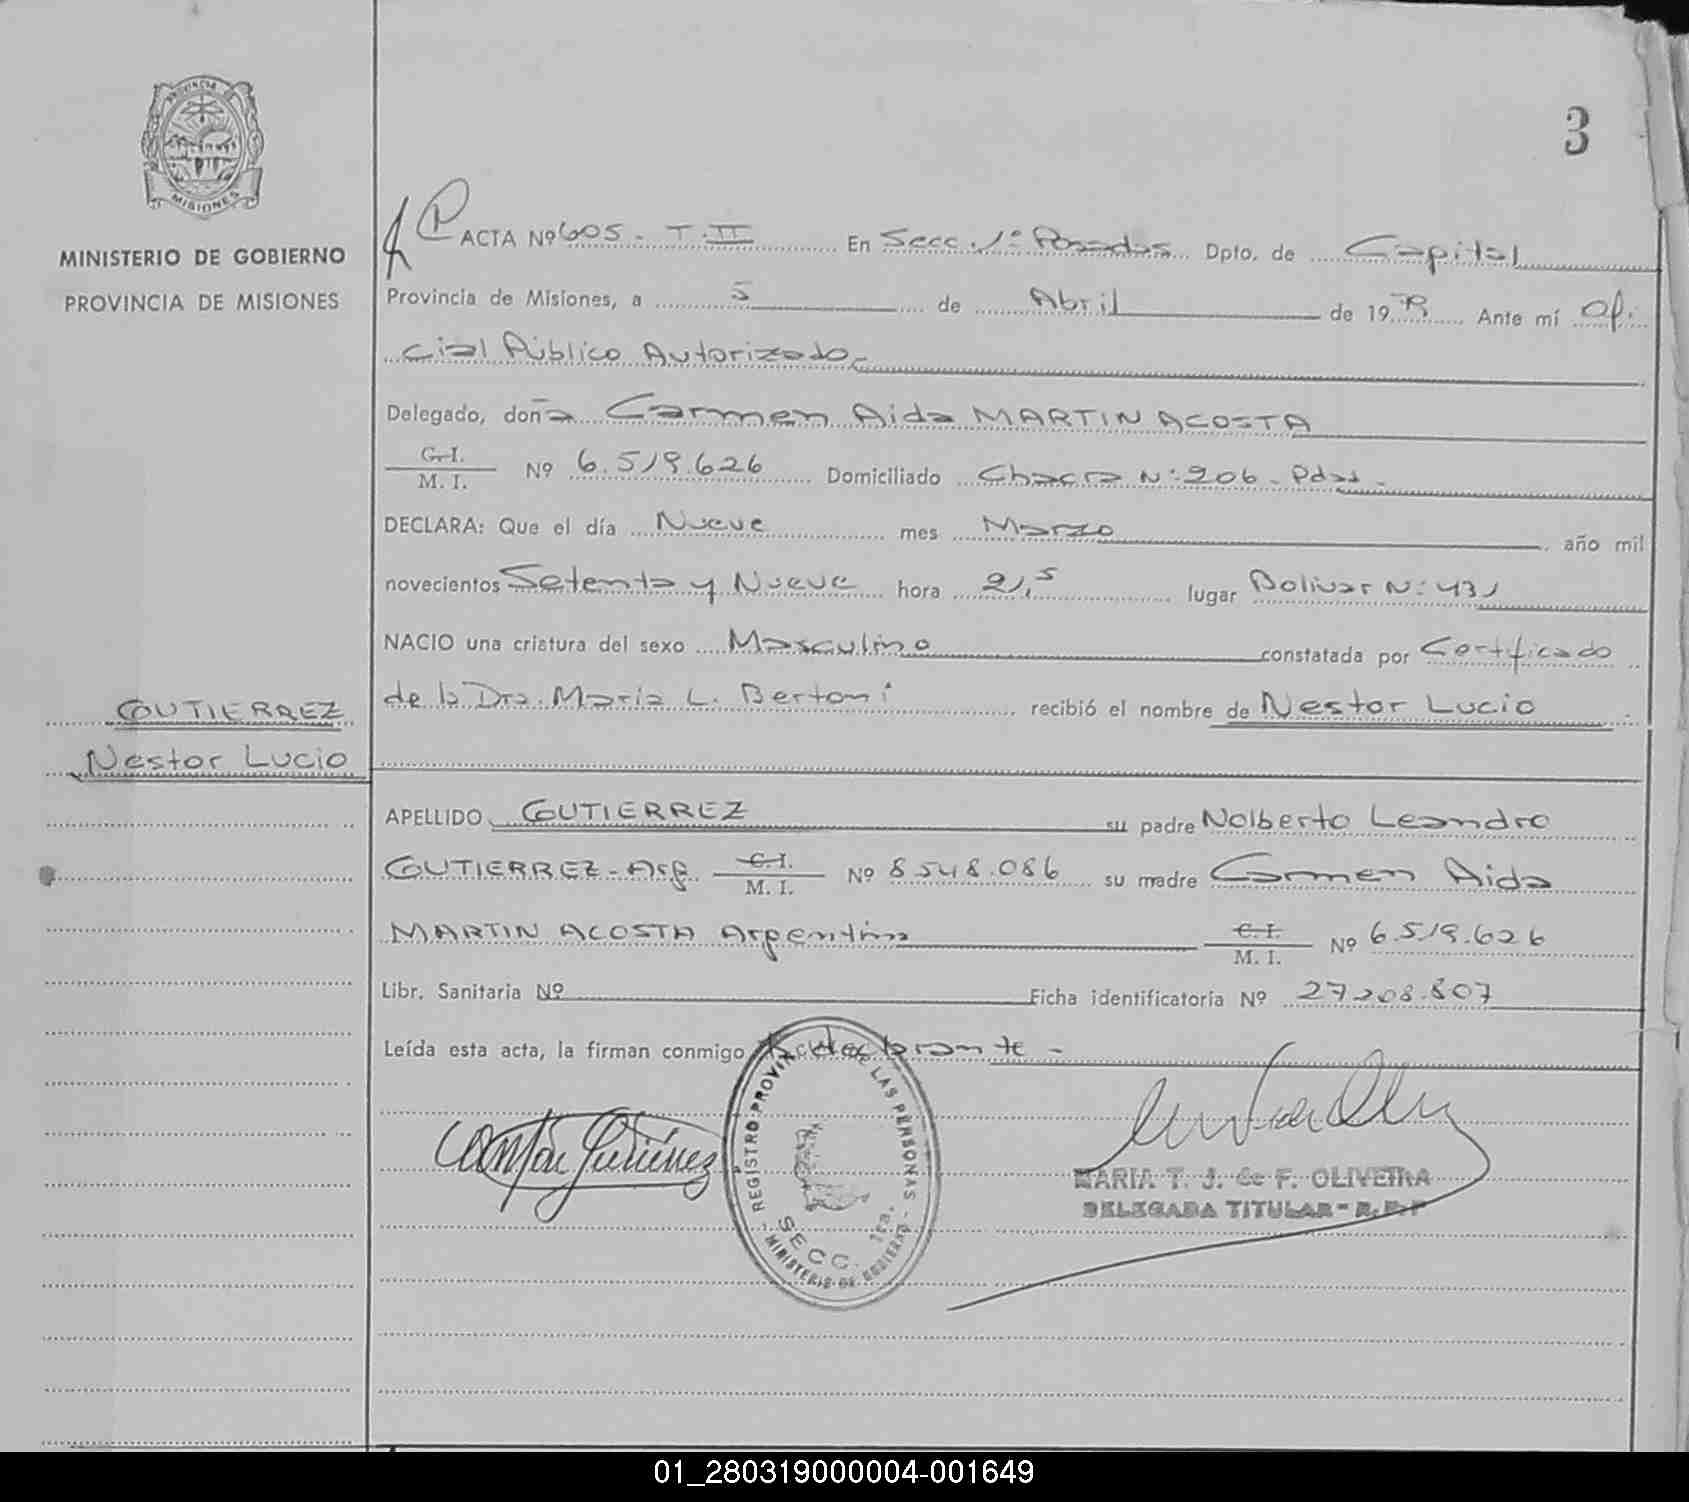 3
PROVINCIA DE
MISIONES
MINISTERIO DE GOBIERNO
PROVINCIA DE MISIONES
ACTA Nº 605 - T. II En Secc. 1ª Posadas Dpto. de Capital
Provincia de Misiones, a 5 de Abril de 19 79 Ante mí Ofi-
cial Público Autorizado
Delegado, doña Carmen Aida MARTIN ACOSTA
C. I.
M. I. Nº 6.519.626 Domiciliado Chacra Nº 206 - Pdas -
DECLARA: Que el día Nueve mes Marzo año mil
novecientos Setenta y Nueve hora 21,5 lugar Bolivar Nº 431
NACIO una criatura del sexo Masculino constatada por Certificado
de la Dra. Maria L. Bertoni recibió el nombre de Nestor Lucio
GUTIERREZ
Nestor Lucio
APELLIDO GUTIERREZ su padre Nolberto Leandro
GUTIERREZ - Arg. C. I.
M. I. Nº 8.548.086 su madre Carmen Aida
MARTIN ACOSTA Argentina C. I.
M. I. Nº 6.519.626
Libr. Sanitaria Nº Ficha identificatoria Nº 27.208.807
Leída esta acta, la firman conmigo la declarante -
REGISTRO PROVINCIAL DE LAS PERSONAS
SECC. 1ra.
- MINISTERIO DE GOBIERNO -
MARIA T. J. de F. OLIVEIRA
DELEGADA TITULAR - R. P. P
01_280319000004-001649